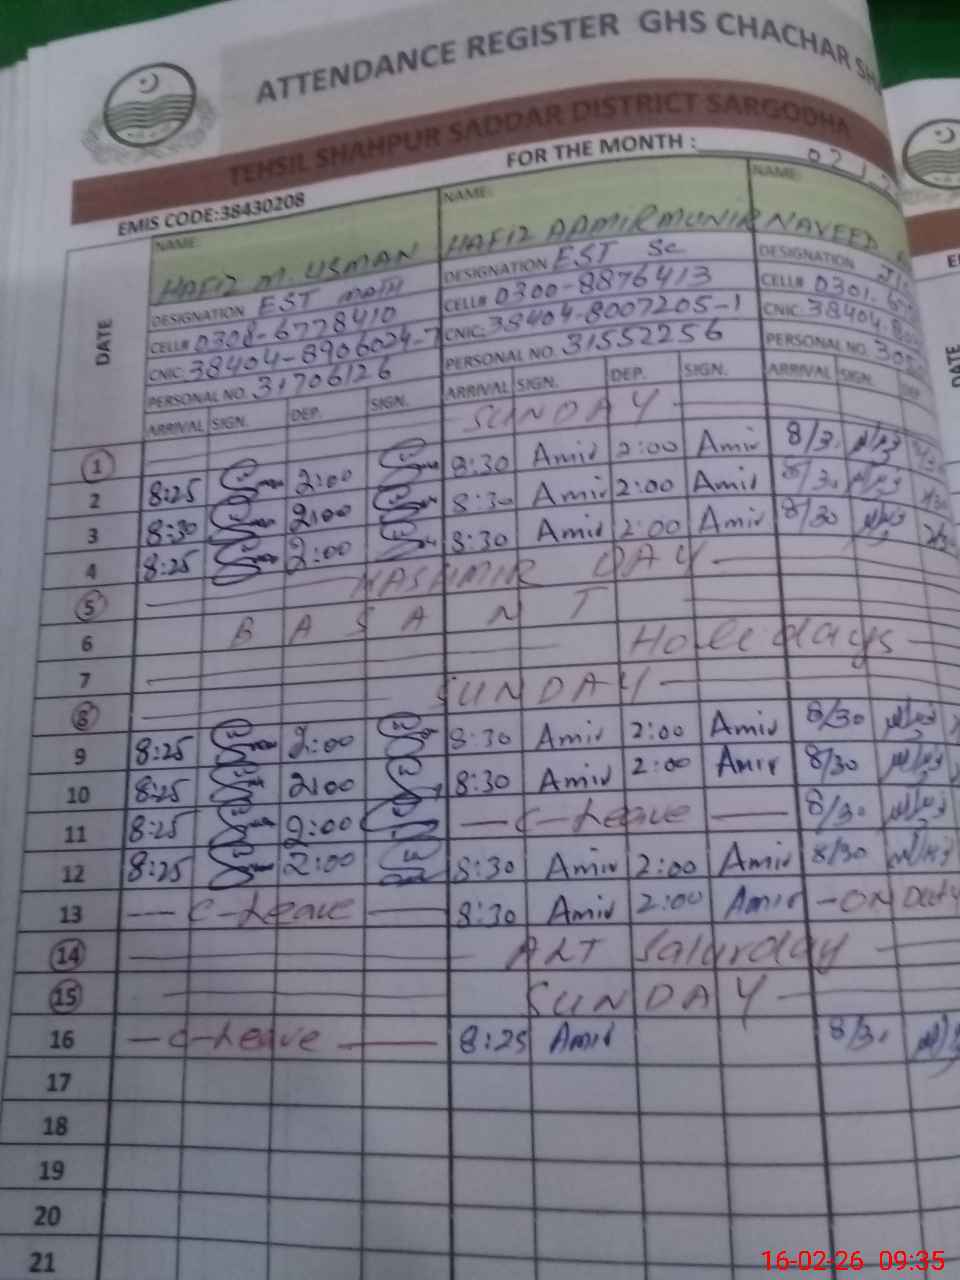 ATTENDANCE REGISTER GHS CHACHAR
TEHSIL SHAHPUR SADDAR DISTRICT SARGODHA
EMIS CODE:38430208 FOR THE MONTH :
DATE NAME: NAME: NAME:
HAFIZ M. USMAN HAFIZ AAMIR MUNIR NAVEED
DESIGNATION EST MATH DESIGNATION EST Sc DESIGNATION
CELL# 0308-6778410 CELL# 0300-8876413 CELL# 0301
CNIC: 38404-8906024-7 CNIC: 38404-8007205-1 CNIC: 38404
PERSONAL NO. 31706126 PERSONAL NO. 31552256 PERSONAL NO.
ARRIVAL SIGN. DEP. SIGN. ARRIVAL SIGN. DEP. SIGN. ARRIVAL SIGN. DEP.
1 SUNDAY
2 8:25 2:00 8:30 Amir 2:00 Amir 8/30
3 8:30 2:00 8:30 Amir 2:00 Amir 8/30
4 8:25 2:00 8:30 Amir 2:00 Amir 8/30
5 KASHMIR DAY
6 BASANT
7 Holidays
8 SUNDAY
9 8:25 2:00 8:30 Amir 2:00 Amir 8/30
10 8:25 2:00 8:30 Amir 2:00 Amir 8/30
11 8:25 2:00 — C-Leave — 8/30
12 8:25 2:00 8:30 Amir 2:00 Amir 8/30
13 — C-Leave — 8:30 Amir 2:00 Amir - ON Duty
14 ALT Saturday
15 SUNDAY
16 — C-Leave — 8:25 Amir 8/30
17
18
19
20
21
16-02-26 09:35